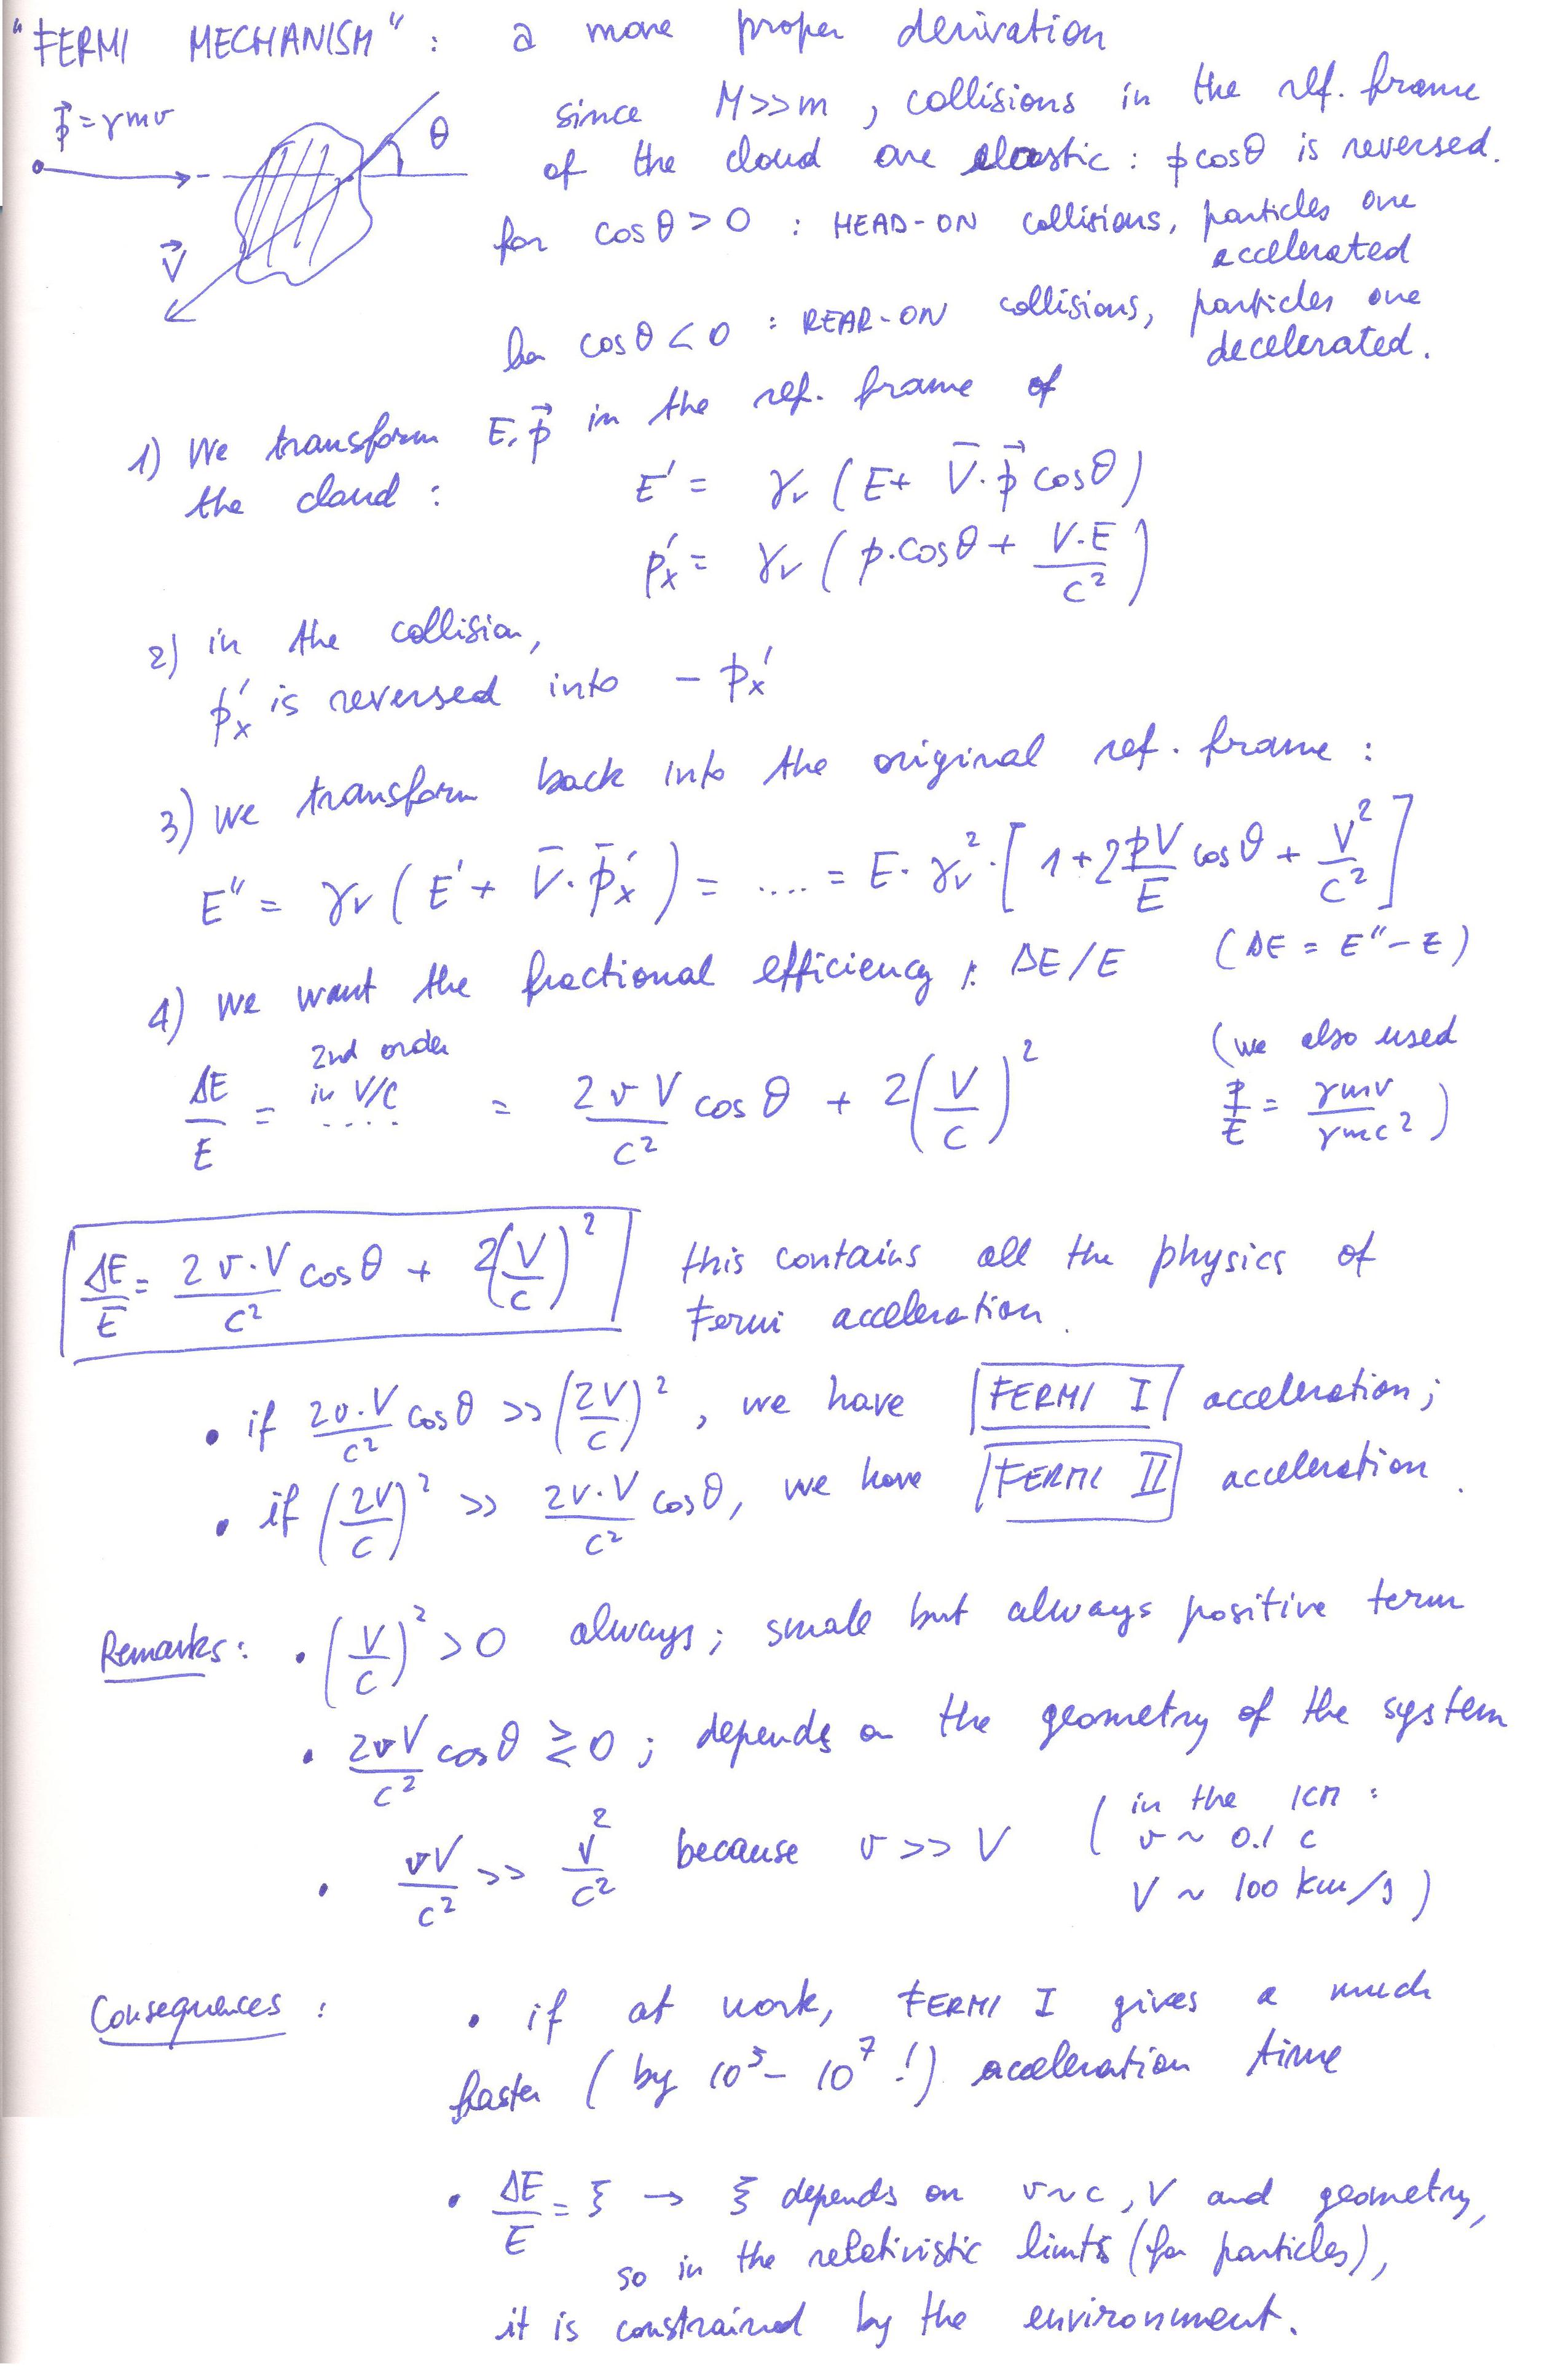 "FERMI MECHANISM" : a more proper derivation
p⃗ = γmv
θ
V⃗
since M>>m, collisions in the ref. frame
of the cloud are elastic : p cosθ is reversed.
for cosθ > 0 : HEAD-ON collisions, particles are
accelerated
for cosθ < 0 : REAR-ON collisions, particles are
decelerated.
1) We transform E, p⃗ in the ref. frame of
the cloud : E' = γv (E + V̄·p⃗ cosθ)
p'x = γv (p·cosθ + V·E/c²)
2) in the collision,
p'x is reversed into - p'x
3) we transform back into the original ref. frame :
E" = γv (E' + V̄·p̄'x) = .... = E·γv²·[1 + 2pV/E cosθ + V²/c²]
4) we want the fractional efficiency : ΔE/E (ΔE = E" - E)
2nd order
in V/C
ΔE/E = .... = 2vV/c² cosθ + 2(V/c)²
(we also used
p/E = γmv/γmc²)
ΔE/E = 2v·V/c² cosθ + 2(V/c)² this contains all the physics of
Fermi acceleration.
• if 2v·V/c² cosθ >> (2V/c)², we have FERMI I acceleration;
• if (2V/c)² >> 2v·V/c² cosθ, we have FERMI II acceleration.
Remarks : • (V/c)² > 0 always; small but always positive term
• 2vV/c² cosθ ≷ 0 ; depends on the geometry of the system
• vV/c² >> V²/c² because v >> V (in the ICM :
v ~ 0.1 c
V ~ 100 km/s)
Consequences : • if at work, FERMI I gives a much
faster (by 10⁵ - 10⁷ !) acceleration time
• ΔE/E = ξ → ξ depends on v~c, V and geometry,
so in the relativistic limits (for particles),
it is constrained by the environment.